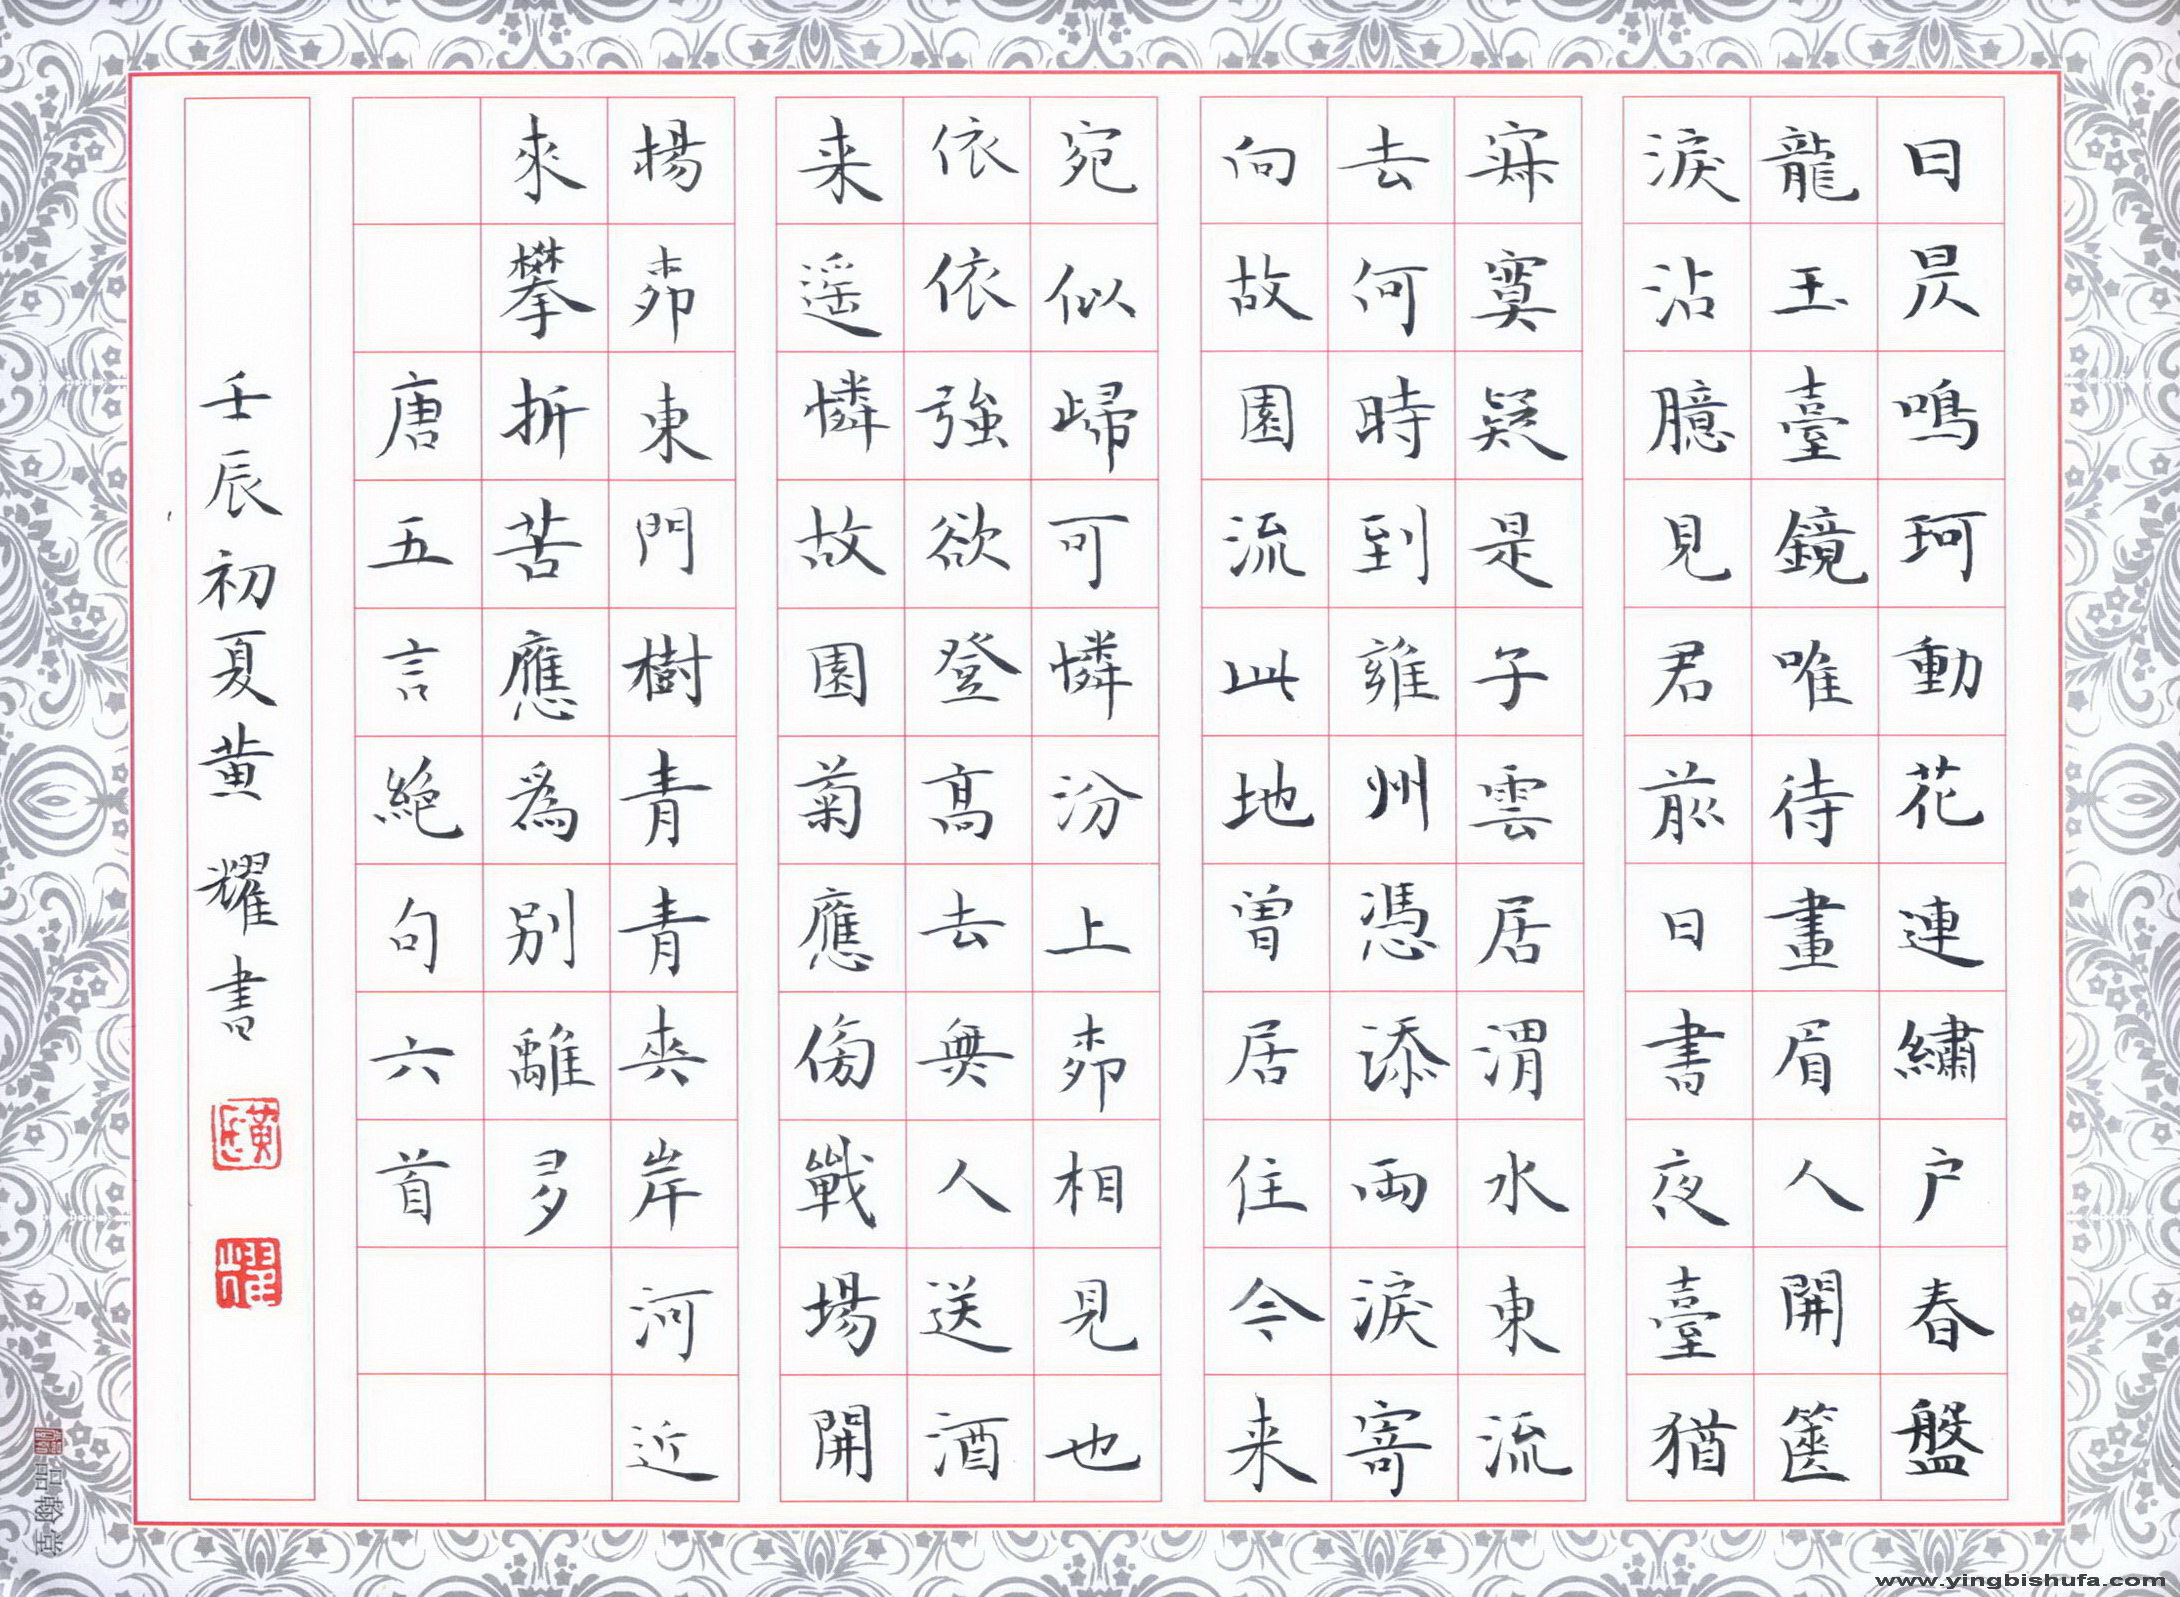 日昃鳴珂動花連繡户春盤
龍玉臺鏡唯待畫眉人開篋
淚沾臆見君前日書夜臺猶
寂寞疑是子雲居渭水東流
去何時到雍州憑添兩淚寄
向故園流此地曾居住今来
宛似歸可憐汾上柳相見也
依依強欲登高去無人送酒
来遥憐故園菊應傍戰場開
楊柳東門樹青青夾岸河近
來攀折苦應爲別離多
唐五言絕句六首
壬辰初夏黄耀書
黄氏
耀
品翰堂
www.yingbishufa.com